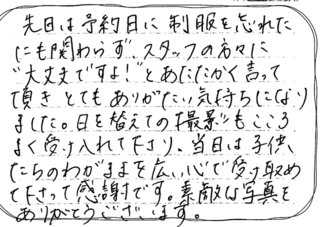 先日は予約日に制服を忘れた
にも関わらず、スタッフの方々に
"大丈夫ですよ!"とあたたかく言って
頂きとてもありがたい気持ちになり
ました。日を替えての撮影もこころ
よく受け入れて下さり、当日は子供
たちのわがままを広い心で受け取め
て下さって感謝です。素敵な写真を
ありがとうございます。